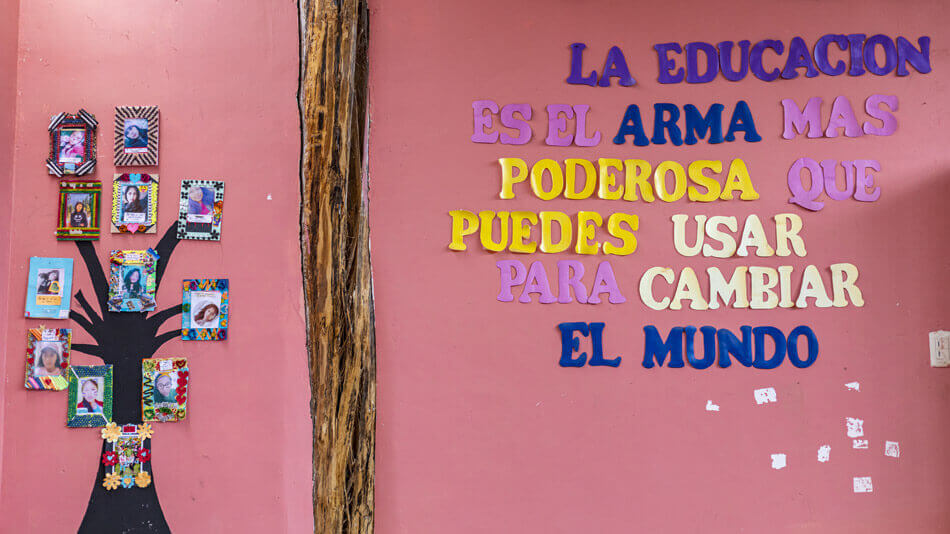 LA EDUCACION
ES EL ARMA MAS
PODEROSA QUE
PUEDES USAR
PARA CAMBIAR
EL MUNDO